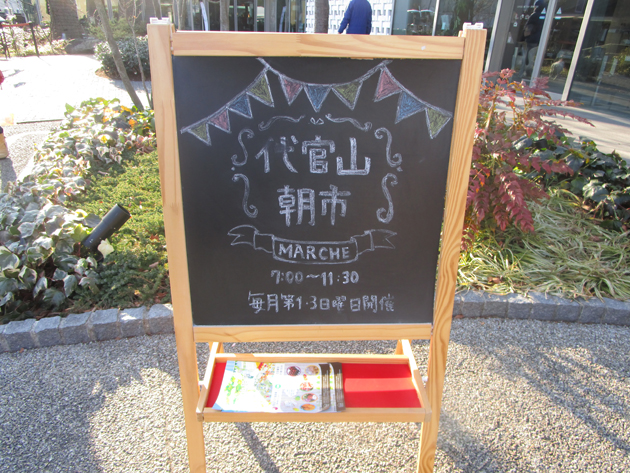 代官山
朝市
MARCHE
7:00～11:30
毎月第1·3日曜日開催